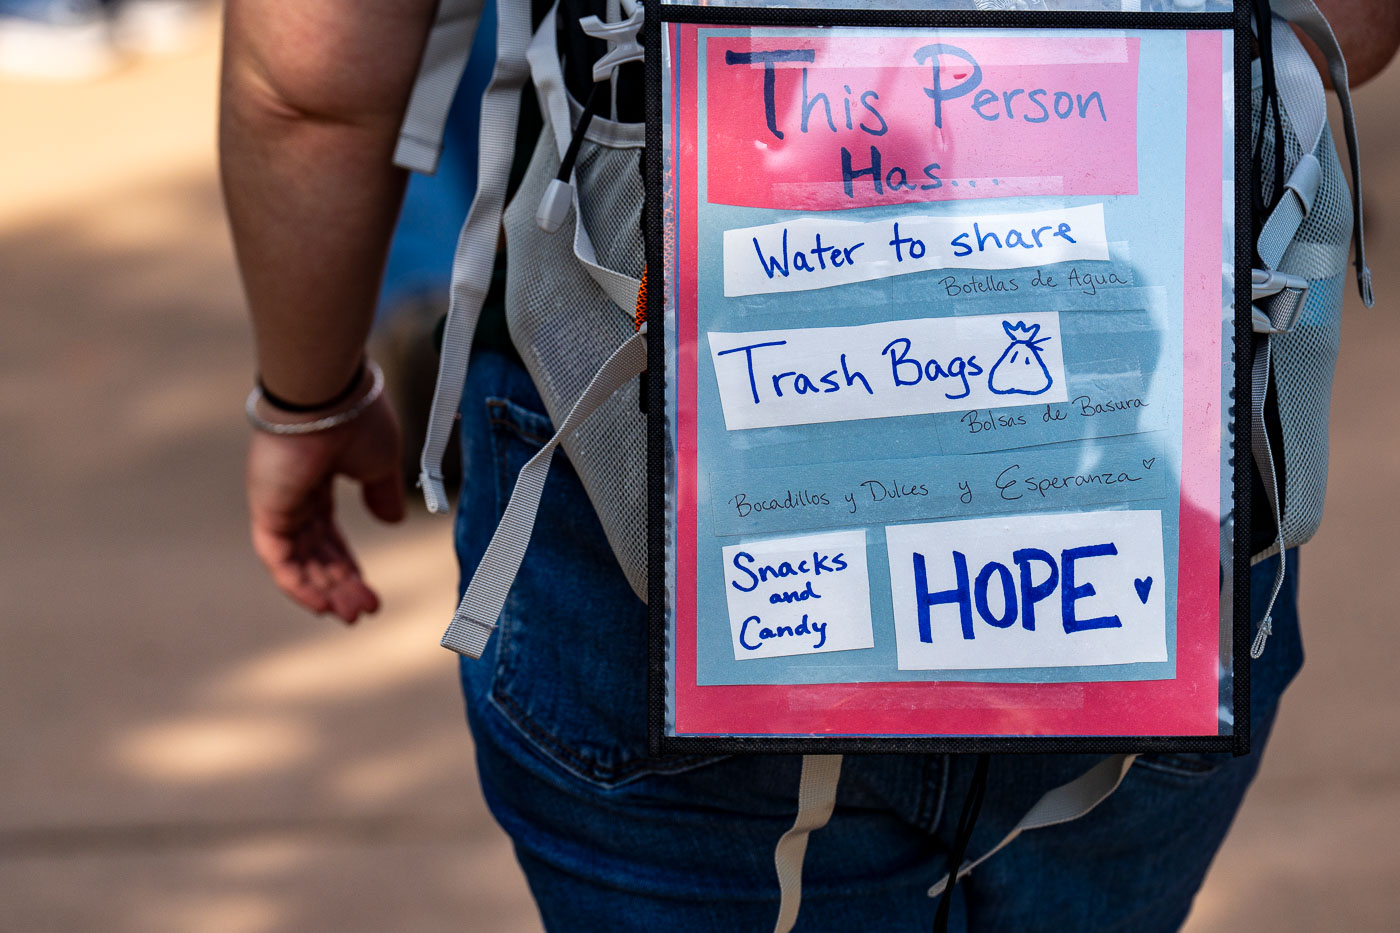 This Person
Has...
Water to share
Botellas de Agua
Trash Bags
Bolsas de Basura
Bocadillos y Dulces y Esperanza
Snacks
and
Candy
HOPE